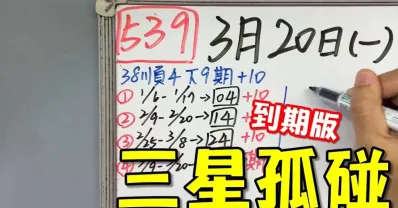 539 3月20日(一)
38順4下9期+10
① 1/6-1/17→104 +10
② 2/9-2/20→114 +10
③ 2/25-3/8→24 +10
到期版
三星孤碰